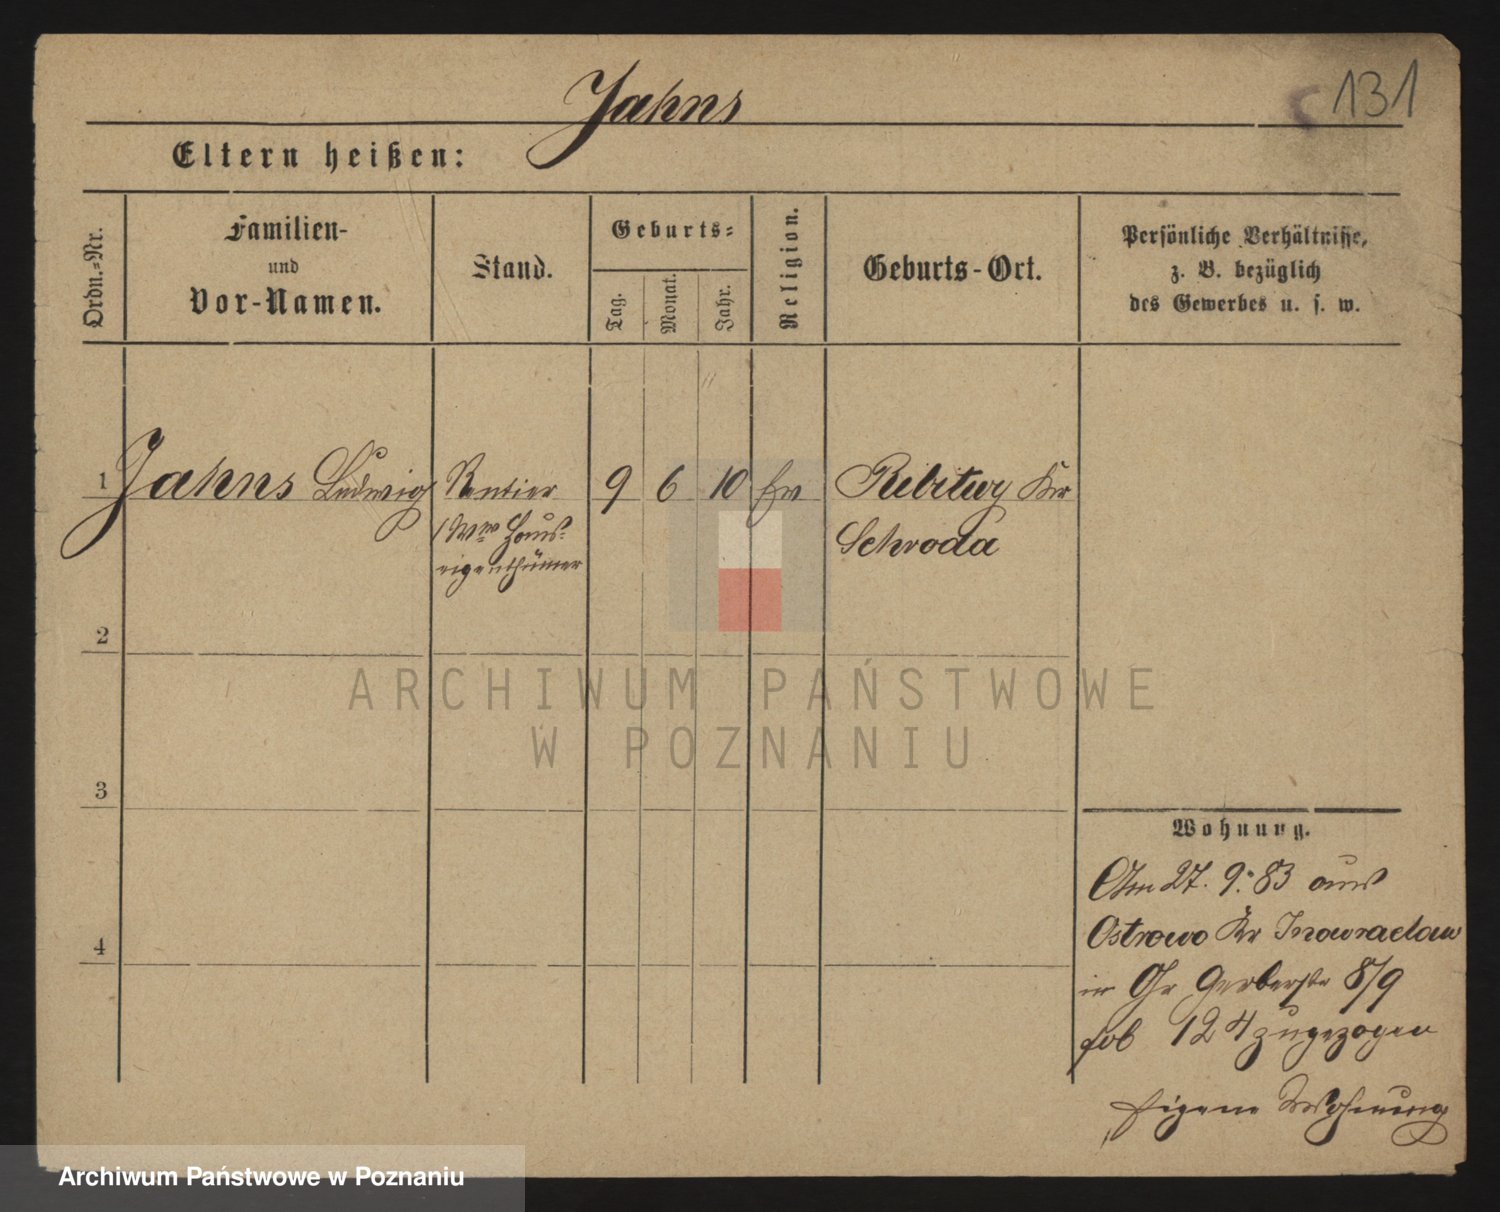 Jahns
131
Eltern heißen:
Ordn.-Nr.
Familien-
und
Vor-Namen.
Stand.
Geburts-
Tag.
Monat.
Jahr.
Religion.
Geburts-Ort.
Persönliche Verhältnisse,
z. B. bezüglich
des Gewerbes u. s. w.
1 Jahns Ludwig Rentier 9 6 10 Ev Rebitwy Kr
Haus-
eigenthümer
Schroda
2
3
4
ARCHIWUM PAŃSTWOWE
W POZNANIU
Wohnung.
Am 27. 9. 83 aus
Ostrowo Kr Inowraclaw
in Gr Gerberstr 8/9
124 zugezogen
Eigene Wohnung
Archiwum Państwowe w Poznaniu